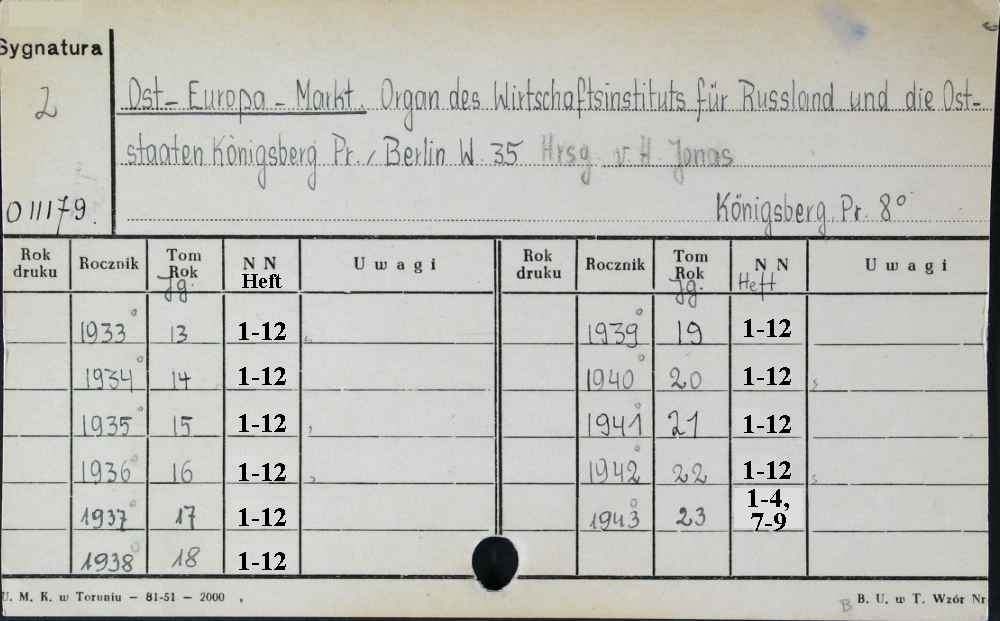 Sygnatura
2
011179.
Ost-Europa-Markt. Organ des Wirtschaftsinstituts für Russland und die Ost-
staaten Königsberg Pr., Berlin W. 35 Hrsg. v. H. Jonas
Königsberg, Pr. 8°
Rok druku Rocznik Tom Rok Jg. NN Heft Uwagi Rok druku Rocznik Tom Rok Jg. NN Heft Uwagi
1933° 13 1-12 1939° 19 1-12
1934° 14 1-12 1940° 20 1-12
1935° 15 1-12 1941° 21 1-12
1936° 16 1-12 1942° 22 1-12
1937° 17 1-12 1943° 23 1-4, 7-9
1938° 18 1-12
U. M. K. w Toruniu — 81-51 — 2000
B B. U. w T. Wzór Nr